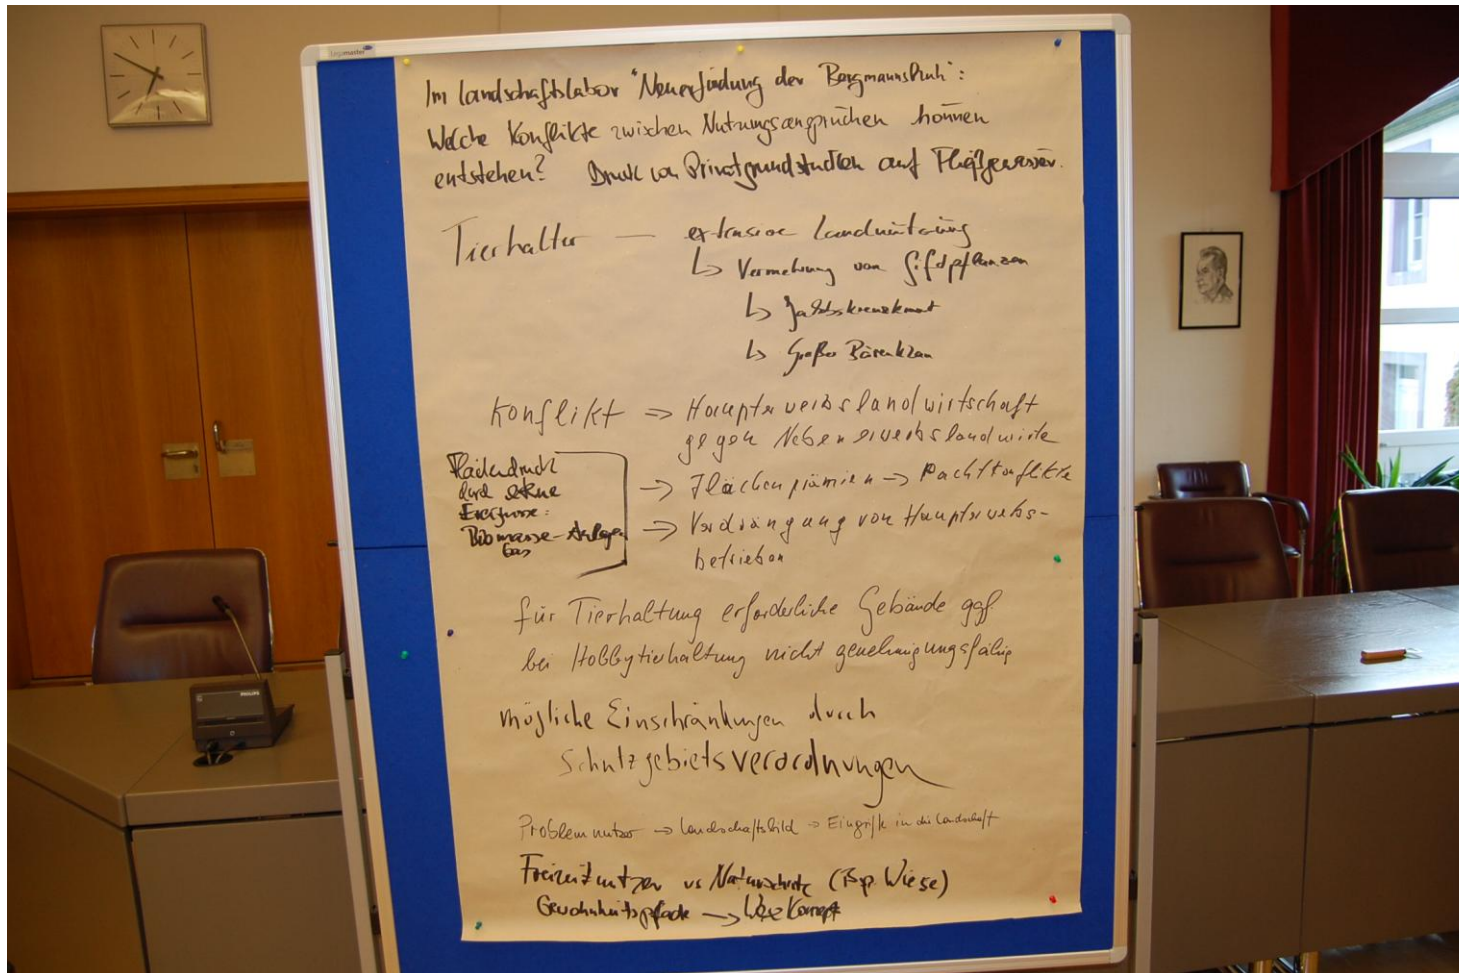 Legamaster
Im Landschaftslabor "Neuerfindung der Bergmannskuh":
Welche Konflikte zwischen Nutzungsansprüchen können
entstehen? Druck von Privatgrundstücken auf Fließgewässer.
Tierhalter — extensive Landnutzung
↳ Vermehrung von Giftpflanzen
↳ Jakobskreuzkraut
↳ Großer Bärenklau
Konflikt ⇒ Haupterwerbslandwirtschaft
gegen Nebenerwerbslandwirte
Flächendruck
durch
Biomasse-Anlagen
Gas
→ Flächenprämien → Pachtkonflikte
→ Verdrängung von Haupterwerbs-
betrieben
für Tierhaltung erforderliche Gebäude ggf.
bei Hobbytierhaltung nicht genehmigungsfähig
mögliche Einschränkungen durch
Schutzgebietsverordnungen
Problem nutzer → Landschaftsbild → Eingriffe in die Landschaft
Freizeitnutzer vs Naturschutz (Bsp. Wiese)
Gewohnheitspfade → Wegekonzept
PHILIPS